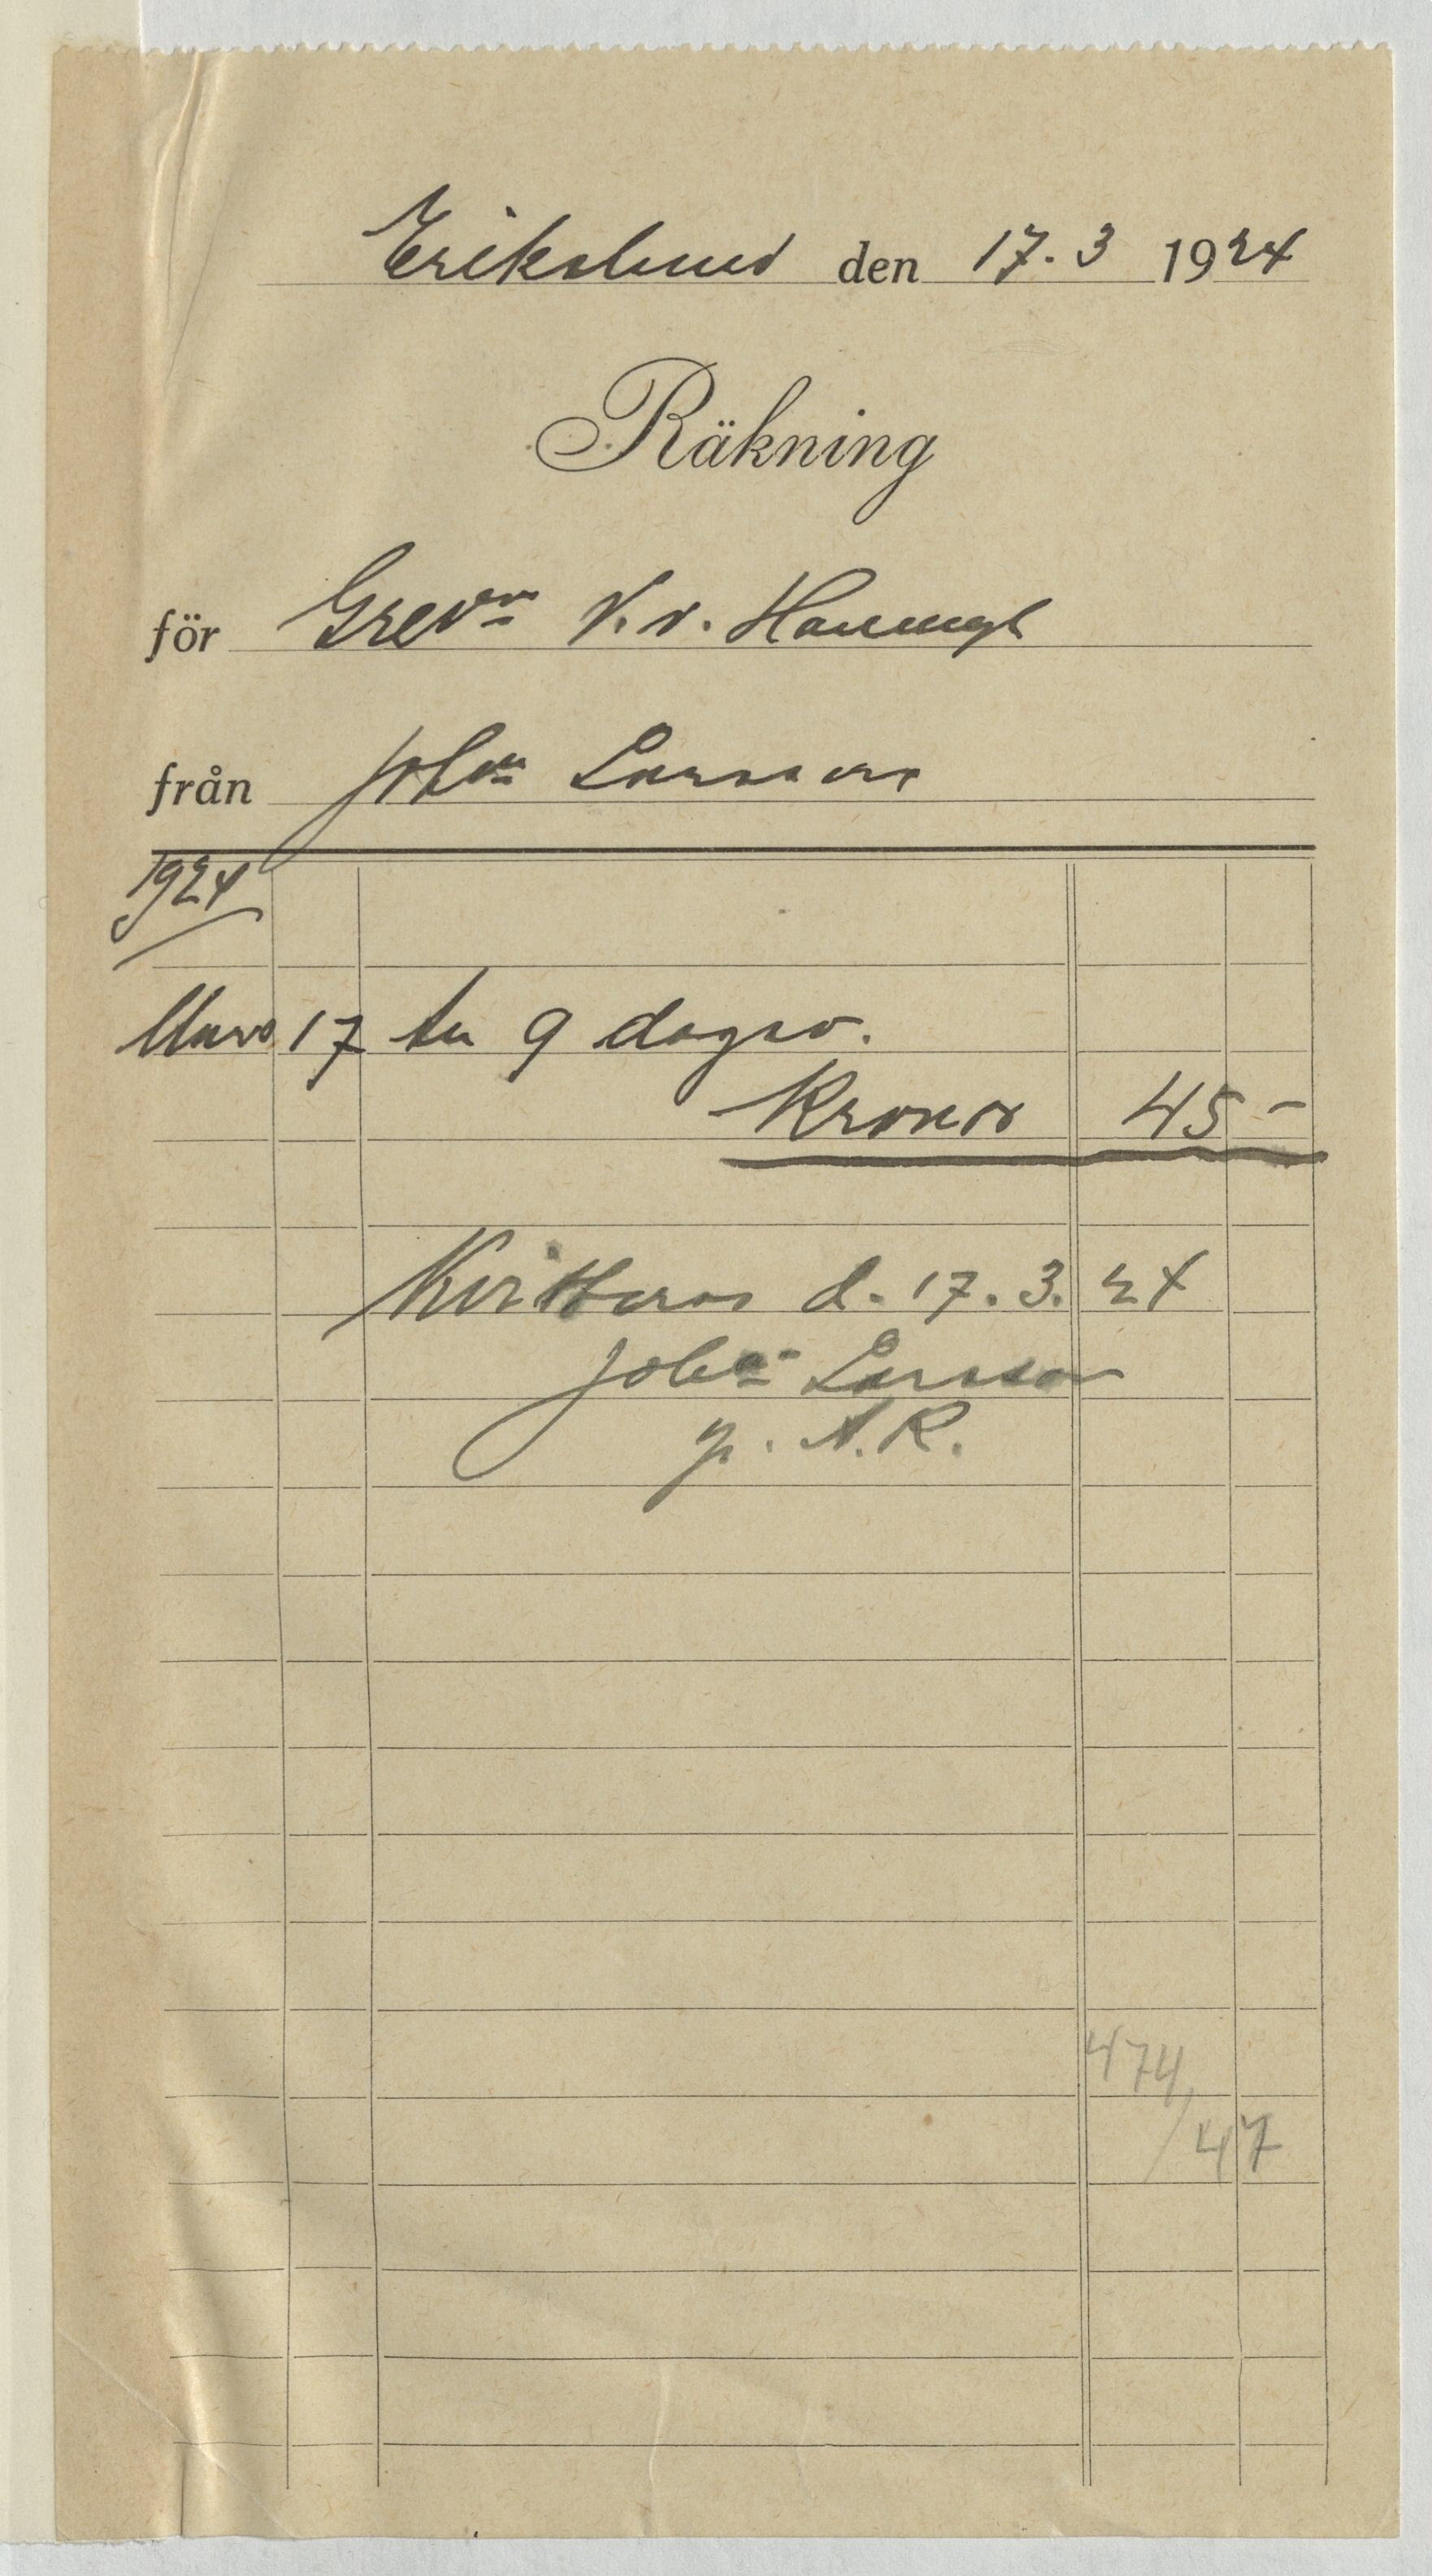 Erikslund den 17.3 1924
Räkning
för Grevn V. v. Hallwyl
från Johan Larsson
1924
Mars 17 tu 9 dagsv.
Kronor 45 -
Kvitteras d. 17.3.24
Johan Larsson
g. A.R.
474
/47